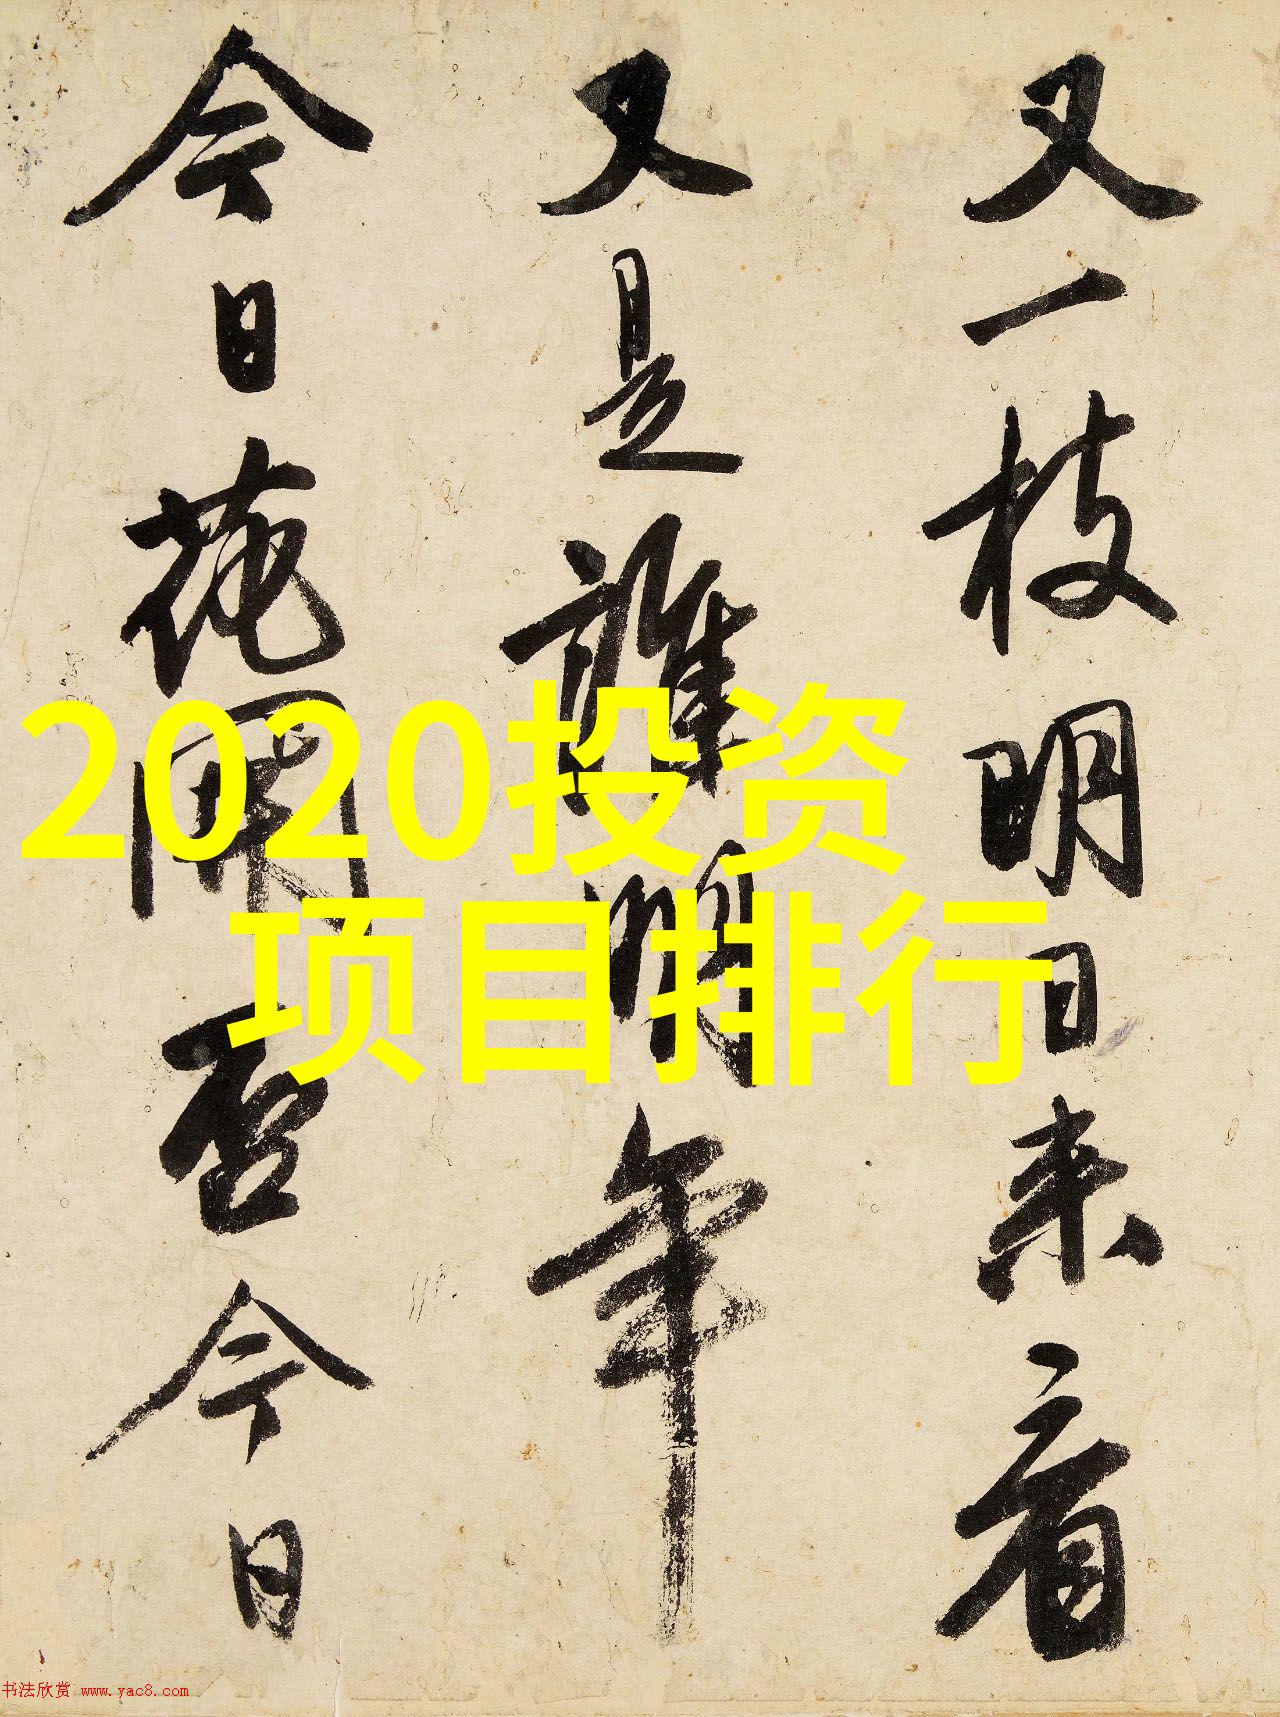 又一枝明日来看
又是誰明年
今日花開否今日
2020投资
项目排行
书法欣赏 www.yac8.com